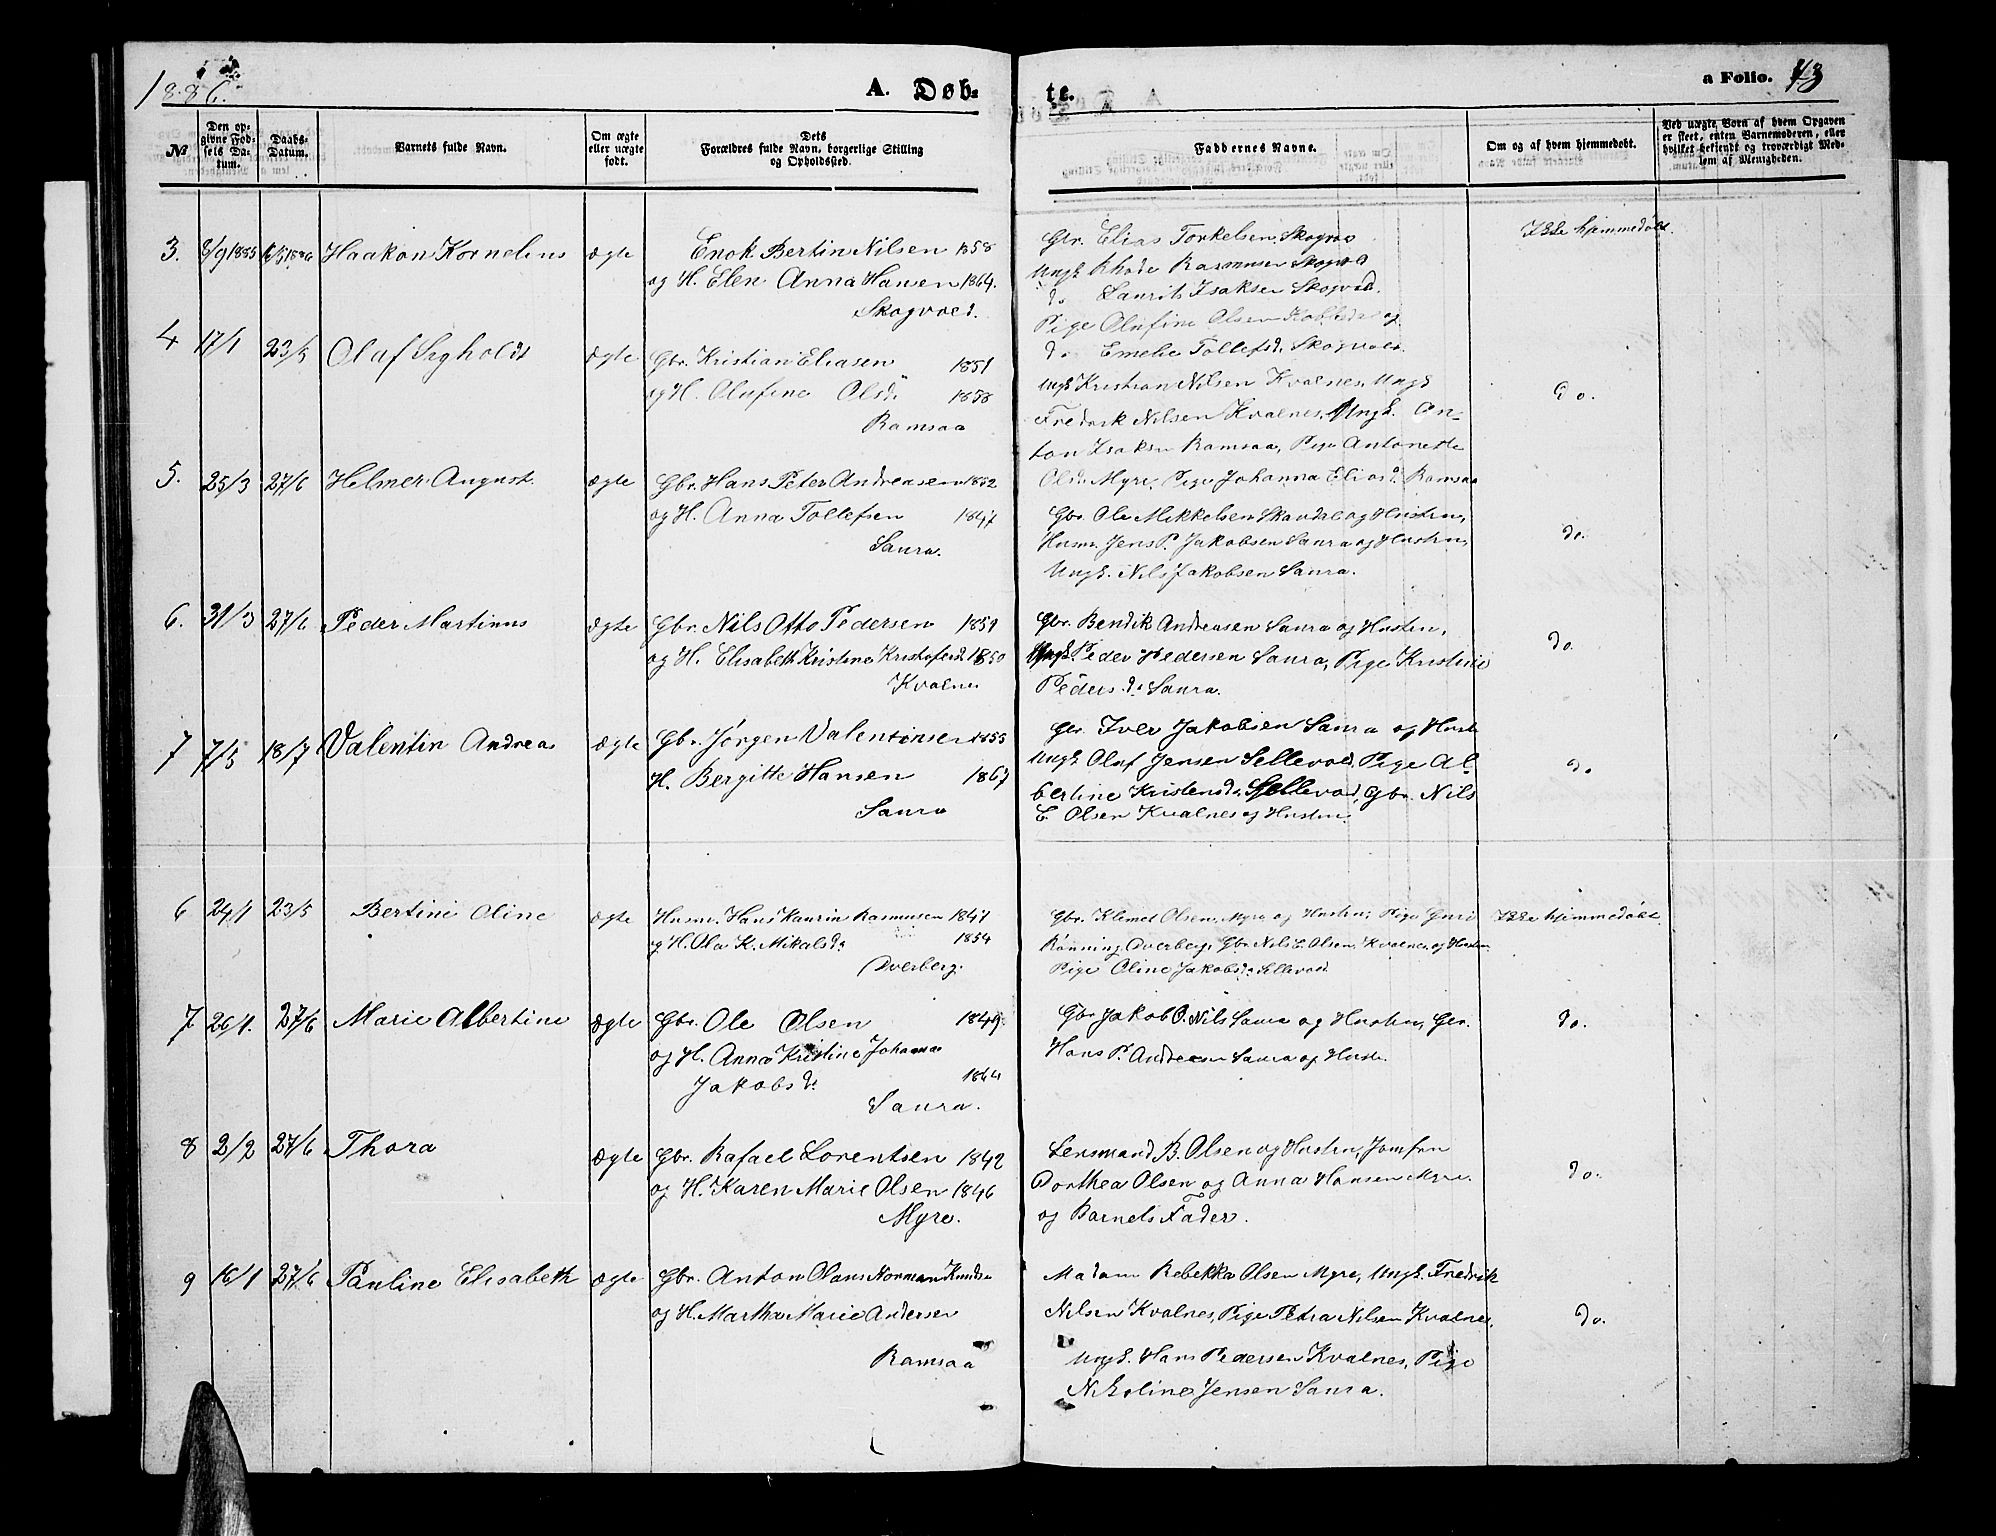 1886.
A. Døb-
te.
a Folio. 43
№
Den op-
givne Fød-
sels Da-
tum.
Daabs-
Datum.
Barnets fulde Navn.
Om ægte
eller uægte
født.
Dets
Forældres fulde Navn, borgerlige Stilling
og Opholdssted.
Faddernes Navne.
Om og af hvem hjemmedøbt.
Ved uægte Børn af hvem Opgaven
er skeet, enten Barnemoderen, eller
hvilket bekjendt og troværdigt Med-
lem af Menigheden.
3. 8/9 1885 Haakon Kornelius ægte
Enok Bertin Nilsen 1858
og H. Elen Anna Hansen 1864.
Skogvoed.
Gbr. Elias Torkelsen Skogvoe
Ungk. Rasmusen Skogvo
do Laurits Isaksen Skogvod.
Pige Olufine Olsen og
do Emelie Tollefsd. Skogvoe.
Ikke hjemmedøbt.
4 17/1 23/5 Olaf Sigholdt ægte
Gbr. Kristian Eliasen 1851
og H. Olufine Olsd. 1858
Ramsaa
Ungk Kristian Nilsen Kvalnes, Ungk
Fredrik Nilsen Kvalnes, Ungk. An-
ton Isaksen Ramsaa, Pige Antonette
Olsd. Myre, Pige Johanna Eliasd. Ramsaa
do.
5. 25/3 27/6 Helmer August. ægte
Gbr. Hans Peter Andreasen 1852
og H. Anna Tollefsen 1847
Saura.
Gbr. Ole Mikkelsen Skavdal og Hustru,
Husm. Jens P. Jakobsen Saura og Hustru,
Ungk. Nils Jakobsen Saura.
do.
6. 31/3 27/6 Peder Martinus ægte
Gbr. Nils Otto Pedersen 1851
og H. Elisabeth Kristine Kristofersd 1850
Kvalnes
Gbr. Bendik Andreasen Saura og Hustru,
Ungk. Peder Pedersen Saura, Pige Kristine
Pedersd. Saura.
do.
7 7/5 18/7 Valentin Andreas ægte
Gbr. Jørgen Valentinsen 1855
H. Bergitte Hansen 1867
Saura
Gbr. Iver Jakobsen Saura og Hust
Ungk Oluf Jensen Sellevod, Pige Al-
bertine Kristensd. Sellevod, Gbr. Nils
E. Olsen Kvalnes og Hustru.
do
6 24/1 23/5 Bertine Oline ægte
Husm. Hans Kaurin Rasmusen 1847
og H. Ola K. Mikalsd. 1854
Dverberg.
Gbr. Klemet Olsen Myre og Hustru, Pige Guri
Rønning Dverberg, Gbr. Nils E. Olsen Kvalnes og Hustru
Pige Oline Jakobsd. Sellevod
Ikke hjemmedøbt.
7 26/1. 27/6 Marie Albertine ægte
Gbr. Ole Olsen 1849.
og H. Anna Kristine Johanna
Jakobsd. 1864
Saura.
Gbr. Jakob O. Nils Saura og Hustru, Gbr.
Hans P. Andreasen Saura og Hust.
do.
8 2/2 27/6 Thora ægte
Gbr. Rafael Lorentsen 1842
og H. Karen Marie Olsen 1846
Myre.
Lensmand B. Olsen og Hustru, Jomfru
Dorthea Olsen og Anna Hansen Myre.
og Barnets Fader.
do.
9 16/1 27/6 Pauline Elisabeth ægte
Gbr. Anton Olaus Norman Knuds.
og H. Martha Marie Andersen
Ramsaa
Madam Rebekka Olsen Myre, Ungk. Fredrik
Nilsen Kvalnes, Pige Petra Nilsen Kvalnes,
Ungk. Hans Pedersen Kvalnes, Pige
Nikoline Jensen Saura.
do.